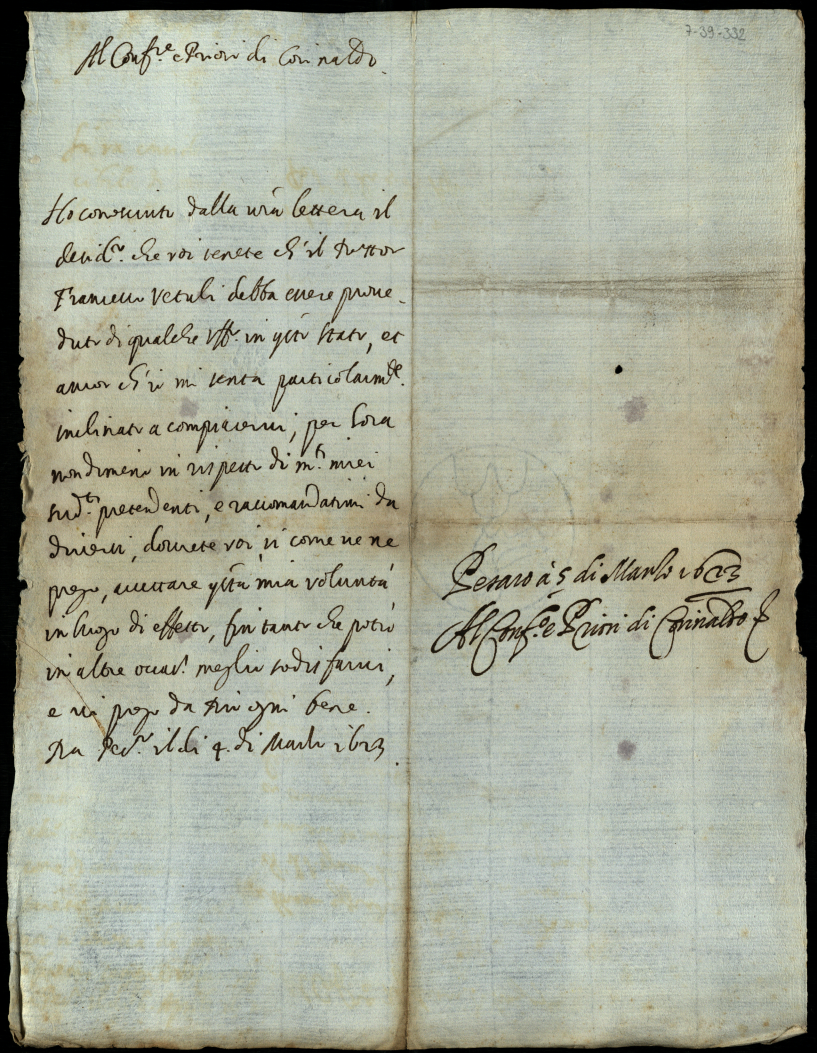 7-39-332
Al Conf.re e Priori di Corinaldo.
Ho conosciuto dalla vra lettera il
desid.o che voi tenete ch'il Dottor
Francesco Vetuli debba essere prove-
duto di qualche Uff.o in q.to Stato, et
ancor ch'io mi senta particolarm.te
inclinato a compiacervi, per hora
nondimeno in rispetto di m.ti miei
sud.ti pretendenti, e raccomandatimi da
diversi, dovrete voi, si come ve ne
prego, accettare q.ta mia volontà
in luogo di effetto, sin tanto che potrò
in altre occas.i meglio sodisfarvi,
e vi prego da Dio ogni bene.
Da Pes.o il di 4. di Marzo 1623.
Pesaro à 5 di Marzo 1623
Al Conf.o e Priori di Corinaldo